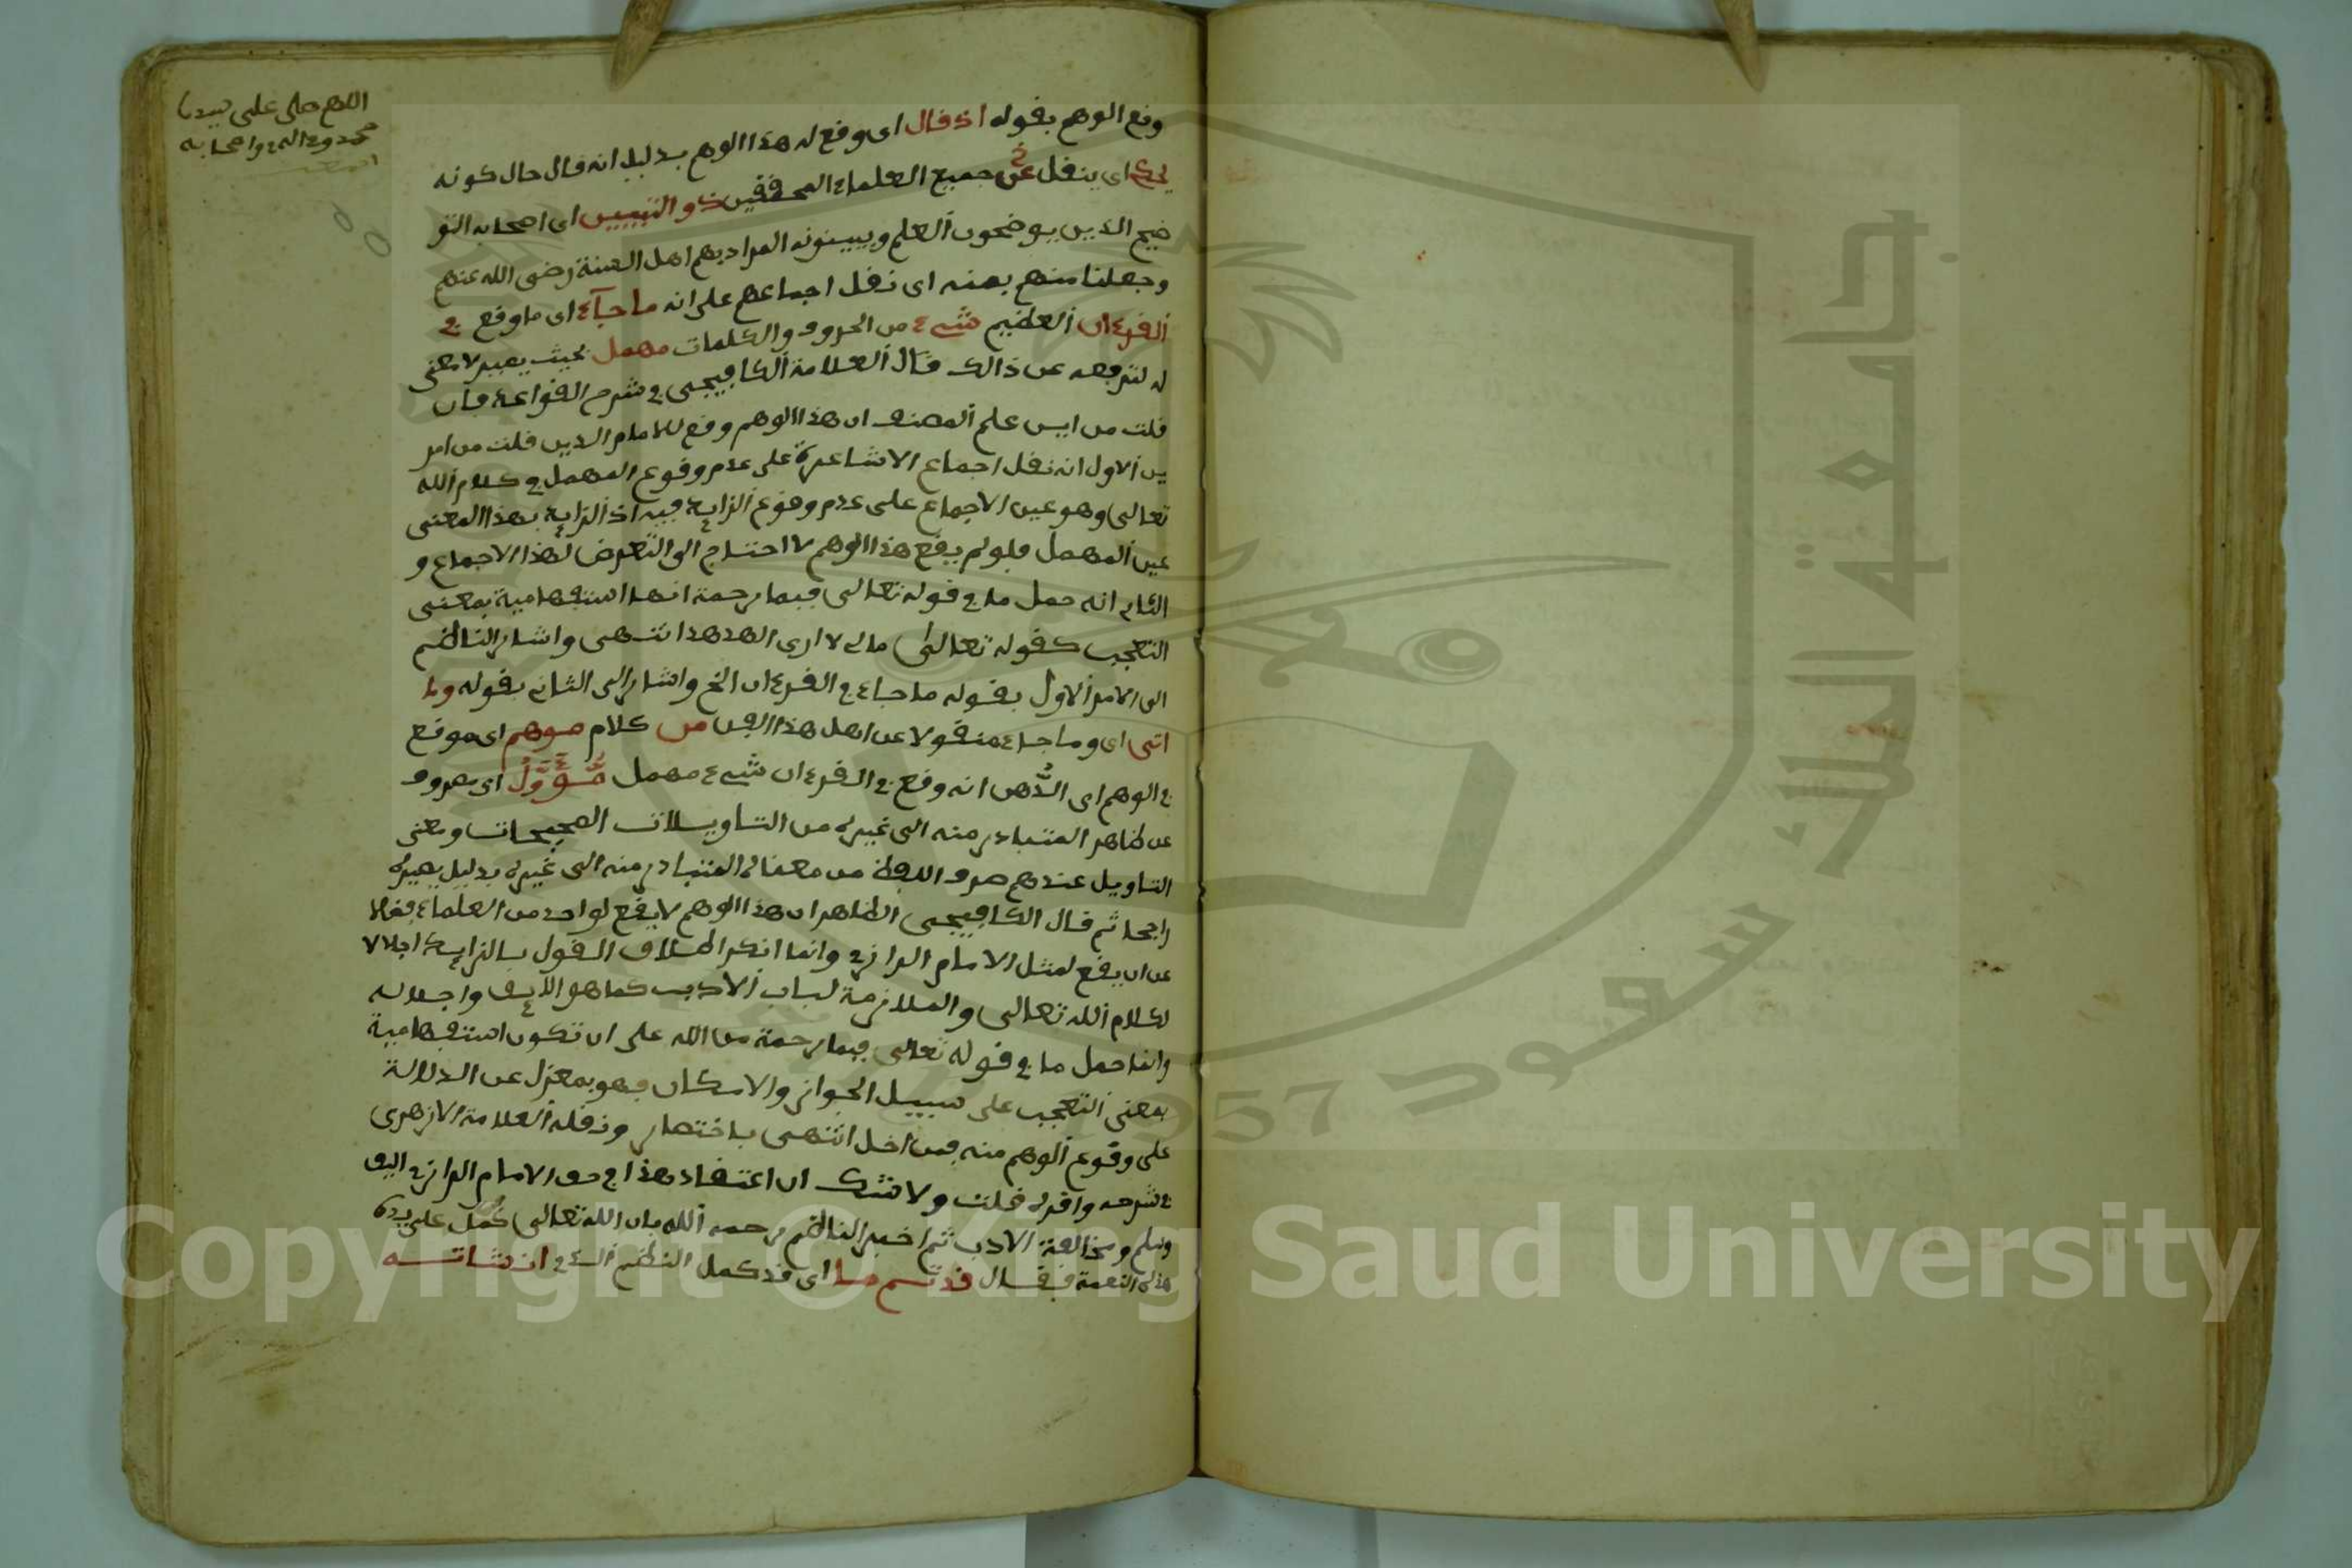 اللهم صلى على سيدنا
محمد وءاله واصحابه
وقع الوهم بقوله اذ قال اى وقع له هذا الوهم بدليل انه قال حال كونه
يحكى اى ينقل عن جميع العلماء المحققين ذو التبيين اى اصحاب التو
ضيح الذين يوضحون العلم ويبينونه المراد بهم اهل السنة رضى الله عنهم
وجعلنا منهم بمنه اى نقل اجماعهم على انه ما جآء اى ما وقع في
القرءان العظيم شىء من الحروف والكلمات مهمل بحيث يصير لا معنى
له لترفعه عن ذالك قال العلامة الكافيجى في شرح القواعد فان
قلت من اين علم المصنف ان هذا الوهم وقع للامام الدين قلت من امر
ين الاول انه نقل اجماع الاشاعرة على عدم وقوع المهمل في كلام الله
تعالى وهو عين الاجماع على عدم وقوع الزايد فيه اذ الزايد بهذا المعنى
عين المهمل فلو لم يقع هذا الوهم لا احتاج الى التعرض لهذا الاجماع و
الثانى انه حمل ما في قوله تعالى فبما رحمة انها استفهامية بمعنى
التعجب كقوله تعالى مالى لا ارى الهدهد انتهى واشار الناظم
الى الامر الاول بقوله ما جاء في القرءان الخ واشار الى الثانى بقوله وما
اتى اى وما جاء منقولا عن اهل هذا الفن من كلام موهم اى موقع
في الوهم اى الذهن انه وقع في القرءان شىء مهمل مؤول اى مصروف
عن ظاهر المتبادر منه الى غيره من التاويلات الصحيحات ومعنى
التاويل عندهم صرف اللفظ من معناه المتبادر منه الى غيره بدليل يصيره
راجحا ثم قال الكافيجى الظاهر ان هذا الوهم لا يقع لواحد من العلماء فضلا
عن ان يقع لمثل الامام الرازى وانما انكر اطلاق القول بالزايد اجلالا
لكلام الله تعالى والملازمة لباب الادب كما هو اللايق واجلاله
وانما حمل ما في قوله تعالى فبما رحمة من الله على ان تكون استفهامية
بمعنى التعجب على سبيل الجواز والامكان فهو بمعزل عن الدلالة
على وقوع الوهم منه فمن اخل انتهى باختصار ونقله العلامة الازهرى
في شرحه واقره قلت ولا شك ان اعتقاد هذا في حق الامام الرازى اليق
وسلم ومخالفة الادب ثم اخبر الناظم رحمه الله بان الله تعالى كمل على يده
هذه النعمة فقال قد تم ما اى قد كمل النظم الذى انشاته